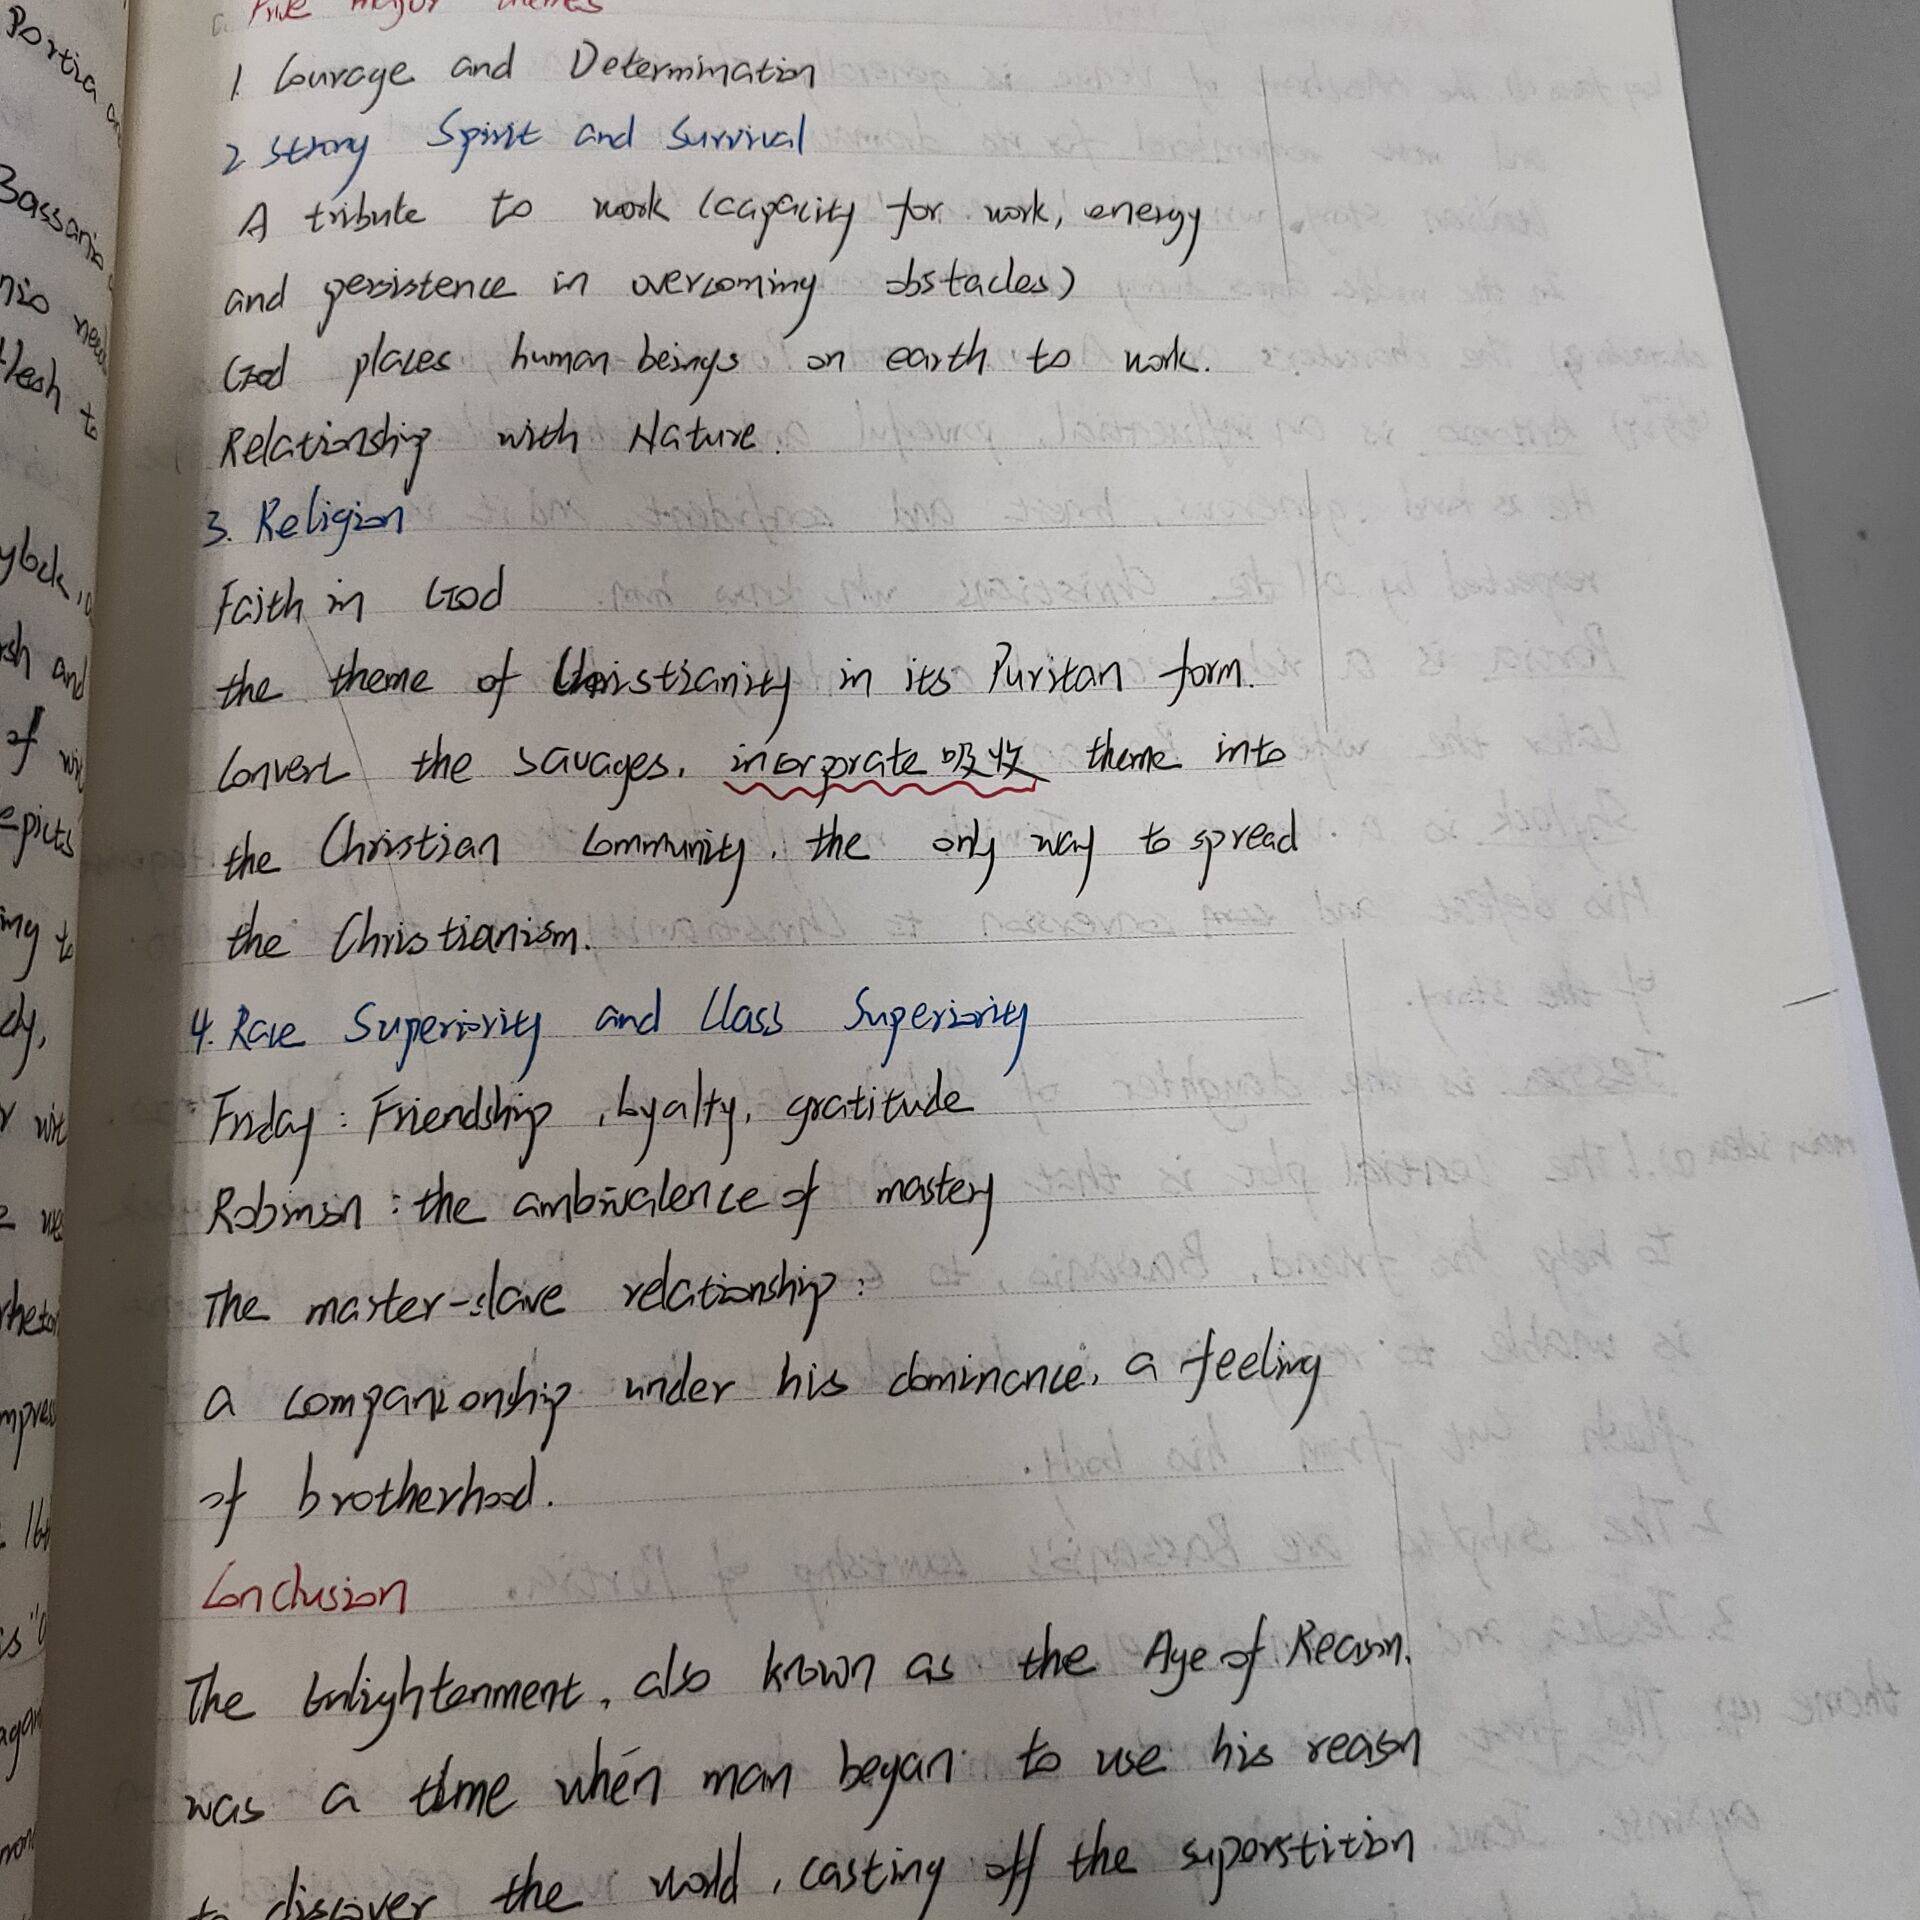 Portia
Bassanio
flesh to
rsh and
of
epicts
ing to
major themes
1. Courage and Determination
2 Strong Spirit and Survival
A tribute to work (capacity for work, energy
and persistence in overcoming obstacles)
God places human beings on earth to work.
Relationship with Nature.
3. Religion
Faith in God
the theme of Christianity in its Puritan form.
Convert the savages, incorporate 吸收 theme into
the Christian Community, the only way to spread
the Christianism.
4. Race Superiority and Class Superiority
Friday: Friendship, loyalty, gratitude
Robinson: the ambivalence of mastery
The master-slave relationship:
a companionship under his dominance, a feeling
of brotherhood.
Conclusion
The Enlightenment, also known as the Age of Reason,
was a time when man began to use his reason
to discover the world, casting off the superstition